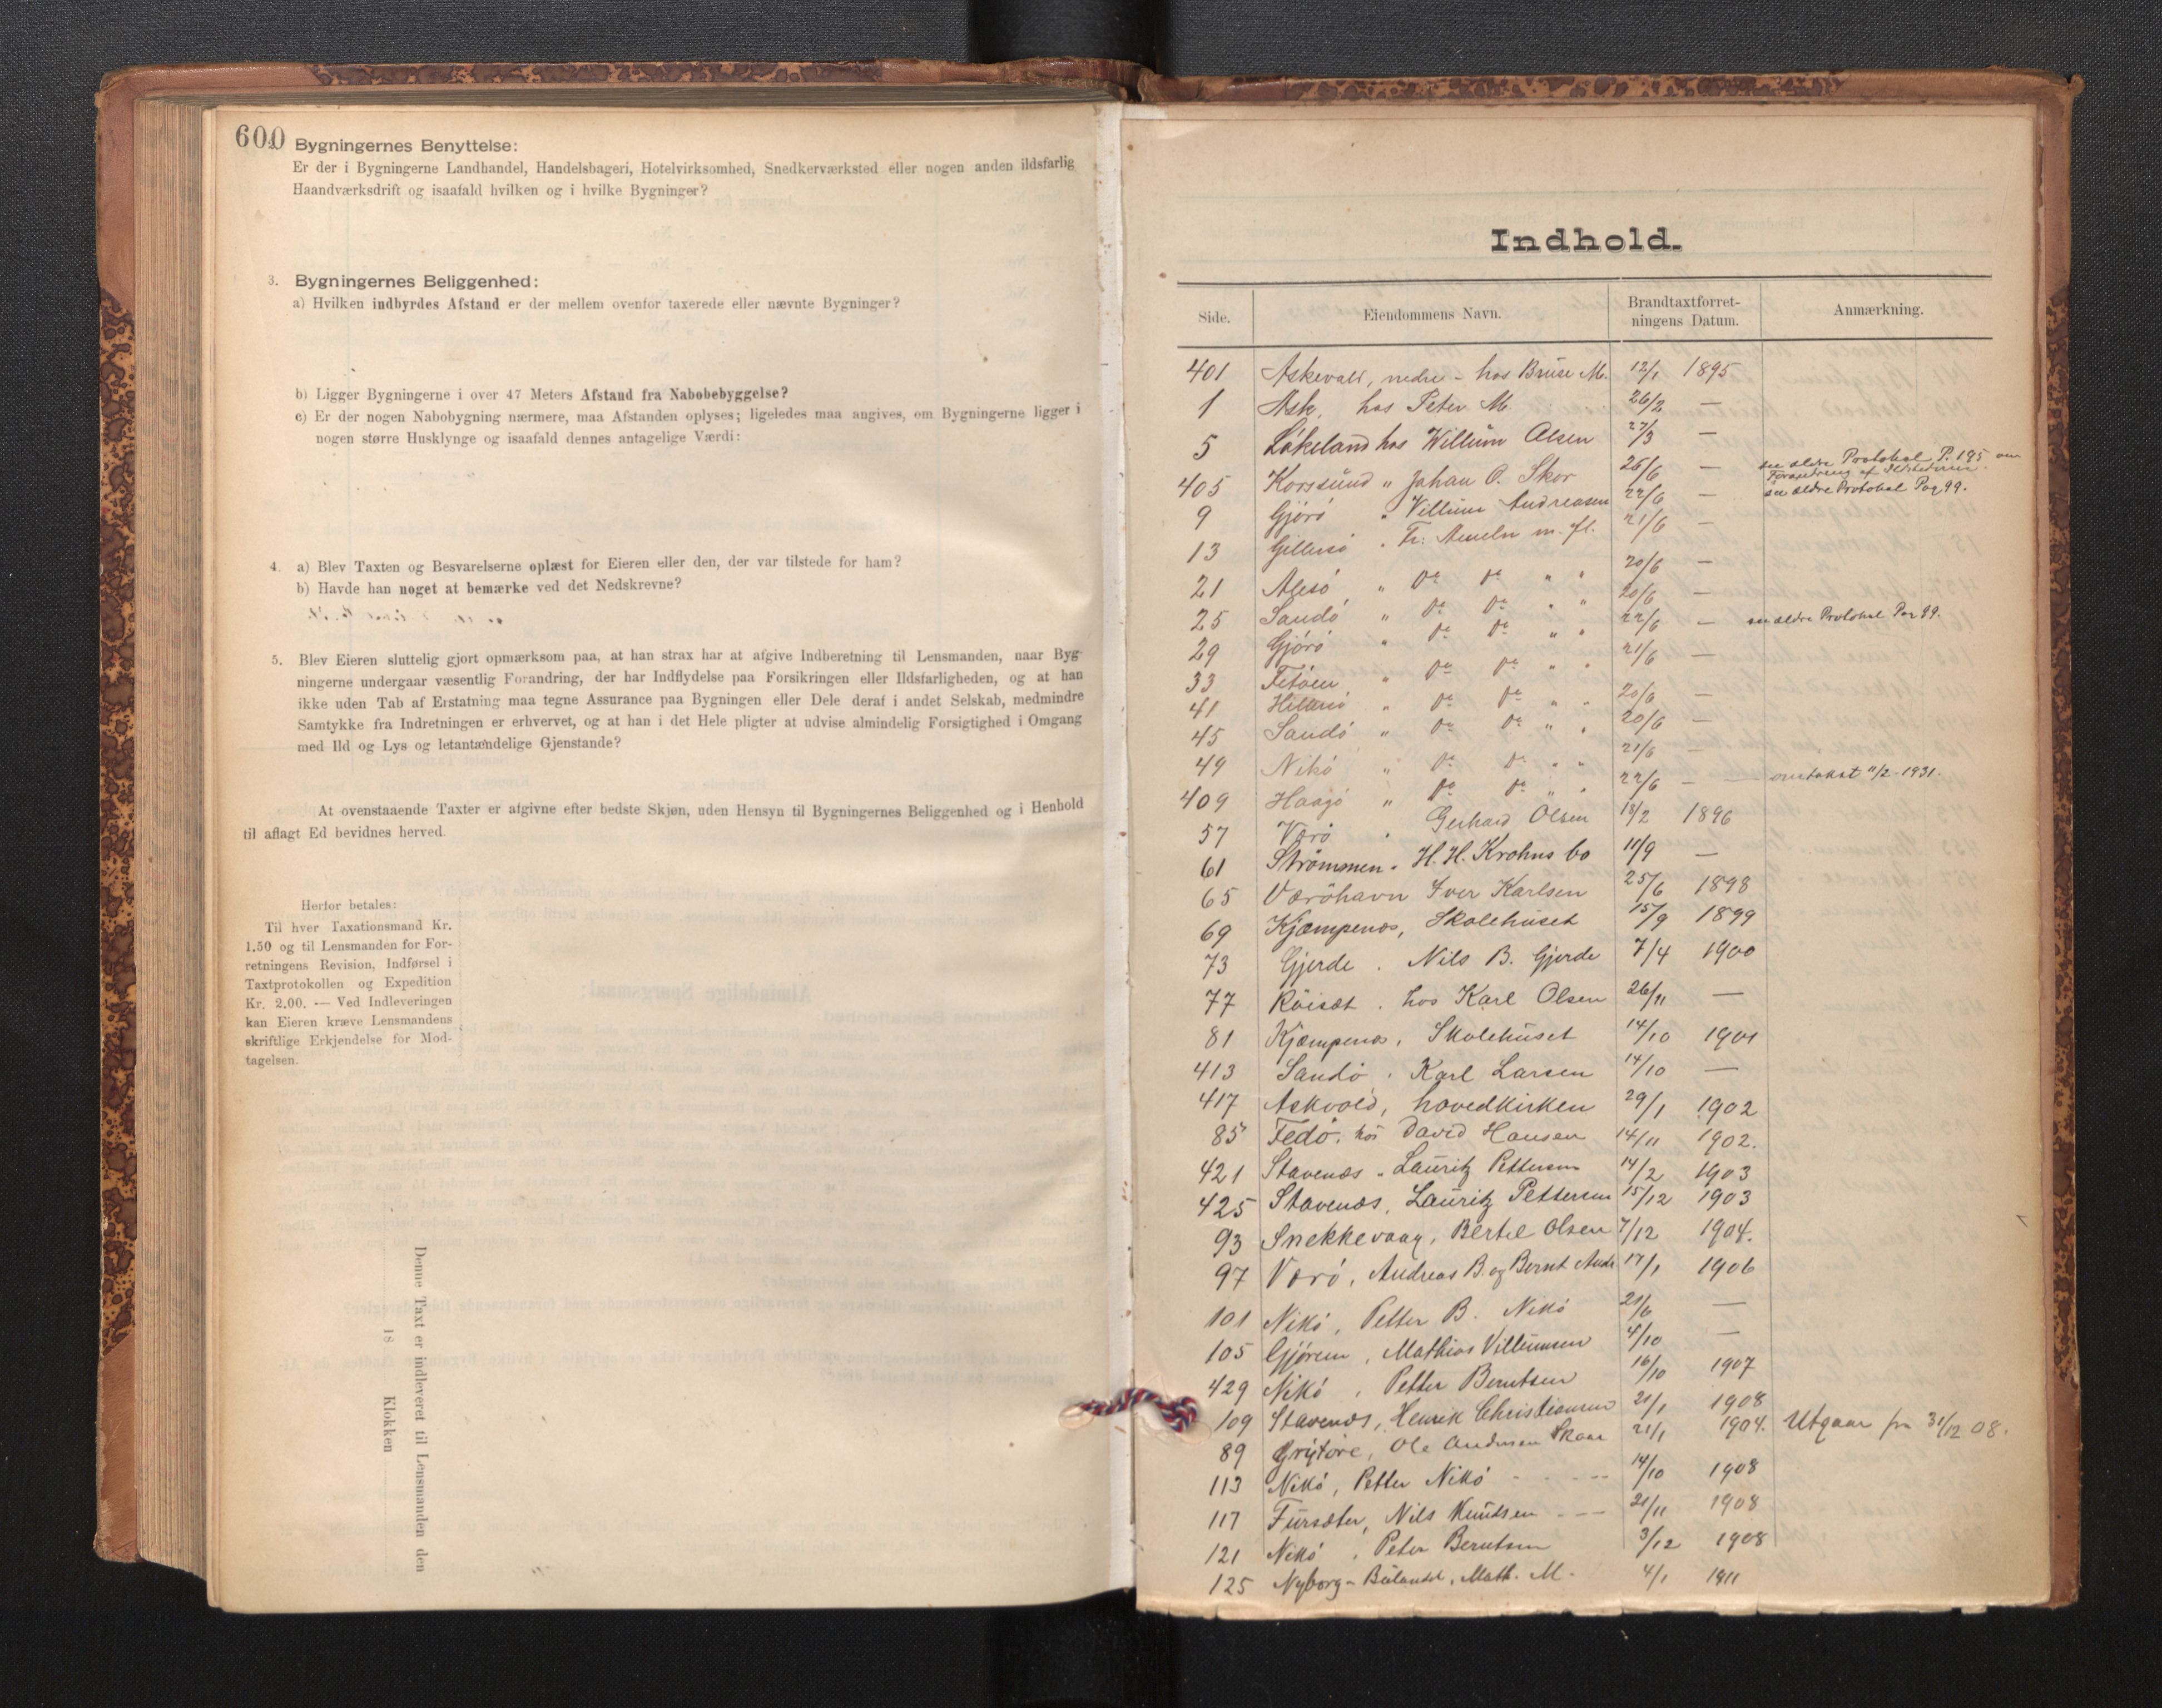 600
2. Bygningernes Benyttelse:
Er der i Bygningerne Landhandel, Handelsbageri, Hotelvirksomhed, Snedkerværksted eller nogen anden ildsfarlig
Haandværksdrift og isaafald hvilken og i hvilke Bygninger?
3. Bygningernes Beliggenhed:
a) Hvilken indbyrdes Afstand er der mellem ovenfor taxerede eller nævnte Bygninger?
b) Ligger Bygningerne i over 47 Meters Afstand fra Nabobebyggelse?
c) Er der nogen Nabobygning nærmere, maa Afstanden oplyses; ligeledes maa angives, om Bygningerne ligger i
nogen større Husklynge og isaafald dennes antagelige Værdi:
4. a) Blev Taxten og Besvarelserne oplæst for Eieren eller den, der var tilstede for ham?
b) Havde han noget at bemærke ved det Nedskrevne?
5. Blev Eieren sluttelig gjort opmærksom paa, at han strax har at afgive Indberetning til Lensmanden, naar Byg-
ningerne undergaar væsentlig Forandring, der har Indflydelse paa Forsikringen eller Ildsfarligheden, og at han
ikke uden Tab af Erstatning maa tegne Assurance paa Bygningen eller Dele deraf i andet Selskab, medmindre
Samtykke fra Indretningen er erhvervet, og at han i det Hele pligter at udvise almindelig Forsigtighed i Omgang
med Ild og Lys og letantændelige Gjenstande?
At ovenstaaende Taxter er afgivne efter bedste Skjøn, uden Hensyn til Bygningernes Beliggenhed og i Henhold
til aflagt Ed bevidnes herved.
Herfor betales:
Til hver Taxationsmand Kr.
1.50 og til Lensmanden for For-
retningens Revision, Indførsel i
Taxtprotokollen og Expedition
Kr. 2.00. — Ved Indleveringen
kan Eieren kræve Lensmandens
skriftlige Erkjendelse for Mod-
tagelsen.
Denne Taxt er indleveret til Lensmanden den
18 Klokken
Indhold.
Side. Eiendommens Navn. Brandtaxtforret-
ningens Datum. Anmærkning.
401 Askevold, nedre - hos Bruse M. 12/1 1895
1 Ask, hos Peter M. 26/2 —
5 Løkeland hos Willum Olsen 27/3 —
405 Korssund " Johan O. Skor 25/6 — see ældre Protokol P. 195 om
Forandring af Ildstederne.
9 Gjørø " Villum Andreasen 22/6 — see ældre Protokol Pag 99.
13 " Fr. m. fl. 21/6 —
21 Alesø " Do Do " " 20/6 —
25 Sandø " Do Do " " 20/6 —
29 Gjørø " Do Do " " 22/6 — see ældre Protokol Pag 99.
33 " Do Do " " 21/6 —
41 " Do Do " " 20/6 —
45 Sandø " Do Do " " 20/6 —
49 Nikø " Do Do " " 21/6 —
409 Haagø " Do Do " " 22/6 — — omtakst 11/2-1931.
57 Værø " Gerhard Olsen 18/2 1896
61 Strømmen " H. H. Krohns bo 11/9 —
65 Værøhavn Iver Karlsen 25/6 1898
69 Kjæmpenes, Skolehuset 15/9 1899
73 Gjerde . Nils B. Gjerde 7/4 1900
77 Røiset . hos Karl Olsen 26/11 —
81 Kjæmpenes, Skolehuset 14/10 1901
413 Sandø . Karl Larsen 14/10 —
417 Askvold, hovedkirken 29/1 1902
85 Fedø. hos David Hansen 14/11 1902.
421 Stavenæs " Lauritz Pettersen 14/2 1903
425 Stavenæs, Lauritz Pettersen 15/12 1903
93 Snekkevaag, Bertel Olsen 7/12 1904.
97 Værø, Andreas B. og Bernt Andr. 17/1 1906
101 Nikø, Petter B. Nikø 21/6 —
105 Gjøren, Mathias Villumsen 4/10 —
429 Nikø, Petter Berntsen 16/10 1907
109 Stavenes, Henrik Christiansen 21/1 1908
89 Grytøre, Ole Andersen Skaar 21/1 1904. Utgaar fra 31/12 08.
113 Nikø, Petter Nikø - - - - 14/10 1908
117 Fursæter, Nils Knudsen - - - 21/11 1908
121 Nikø, Peter Berntsen 3/12 1908
125 Nyborg - Bulandet, Math. M. 4/1 1911